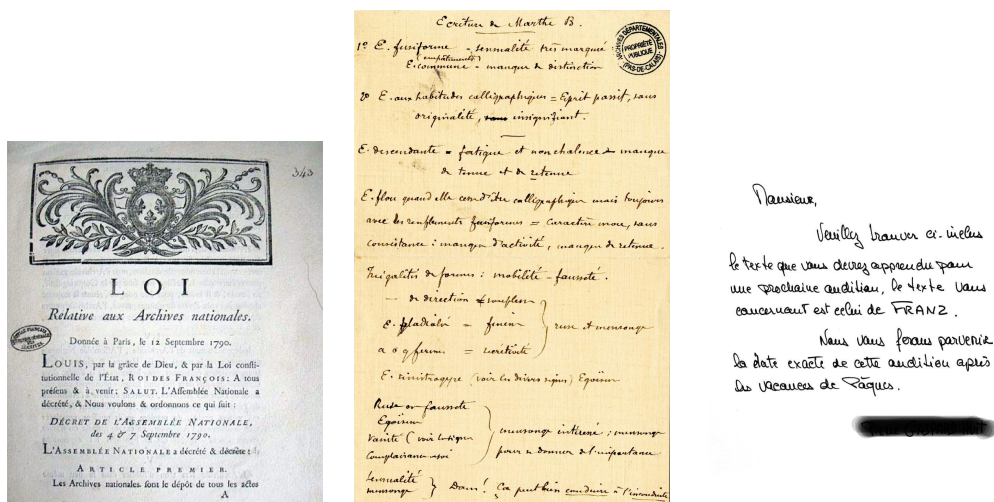 343
LOI
Relative aux Archives nationales.
Donnée à Paris, le 12 Septembre 1790.
LOUIS, par la grâce de Dieu, & par la Loi consti-
tutionnelle de l'État, ROI DES FRANÇOIS: A tous
présens & à venir; SALUT. L'Assemblée Nationale a
décrété, & Nous voulons & ordonnons ce qui suit :
DÉCRET DE L'ASSEMBLÉE NATIONALE,
des 4 & 7 Septembre 1790.
L'ASSEMBLÉE NATIONALE a décrété & décrète :
ARTICLE PREMIER.
Les Archives nationales sont le dépôt de tous les actes
A
Ecriture de Marthe B.
ARCHIVES DÉPARTEMENTALES
PROPRIÉTÉ
PUBLIQUE
(PAS-DE-CALAIS)
1º E. fusiforme = sensualité très marquée
(empâtements)
E. commune = manque de distinction
2º E. aux habitudes calligraphiques = Esprit passif, sans
originalité, insignifiant.
E. descendante = fatigue et nonchalance manque
de tenue et de retenue
E. floue quand elle cesse d'être calligraphique mais toujours
avec les renflements fusiformes = caractère mou, sans
consistance : manque d'activité, manque de retenue.
Inégalités de formes : mobilité - fausseté.
de direction = souplesse
E. = finesse
a o g fermés = ruse et mensonge
E. sinistrogyre (voir les divers signes) Egoïsme
Ruse ou fausseté
Egoïsme
Vanité (voir
mensonge intéressé ; mensonge
pour se donner de l'importance
Sensualité
mensonge } Dam! Ca peut bien conduire à l'inconduite
Monsieur,
Veuillez trouver ci-inclus
le texte que vous devrez apprendre pour
une prochaine audition, le texte vous
concernant est celui de FRANZ.
Nous vous ferons parvenir
la date exacte de cette audition après
les vacances de Pâques.